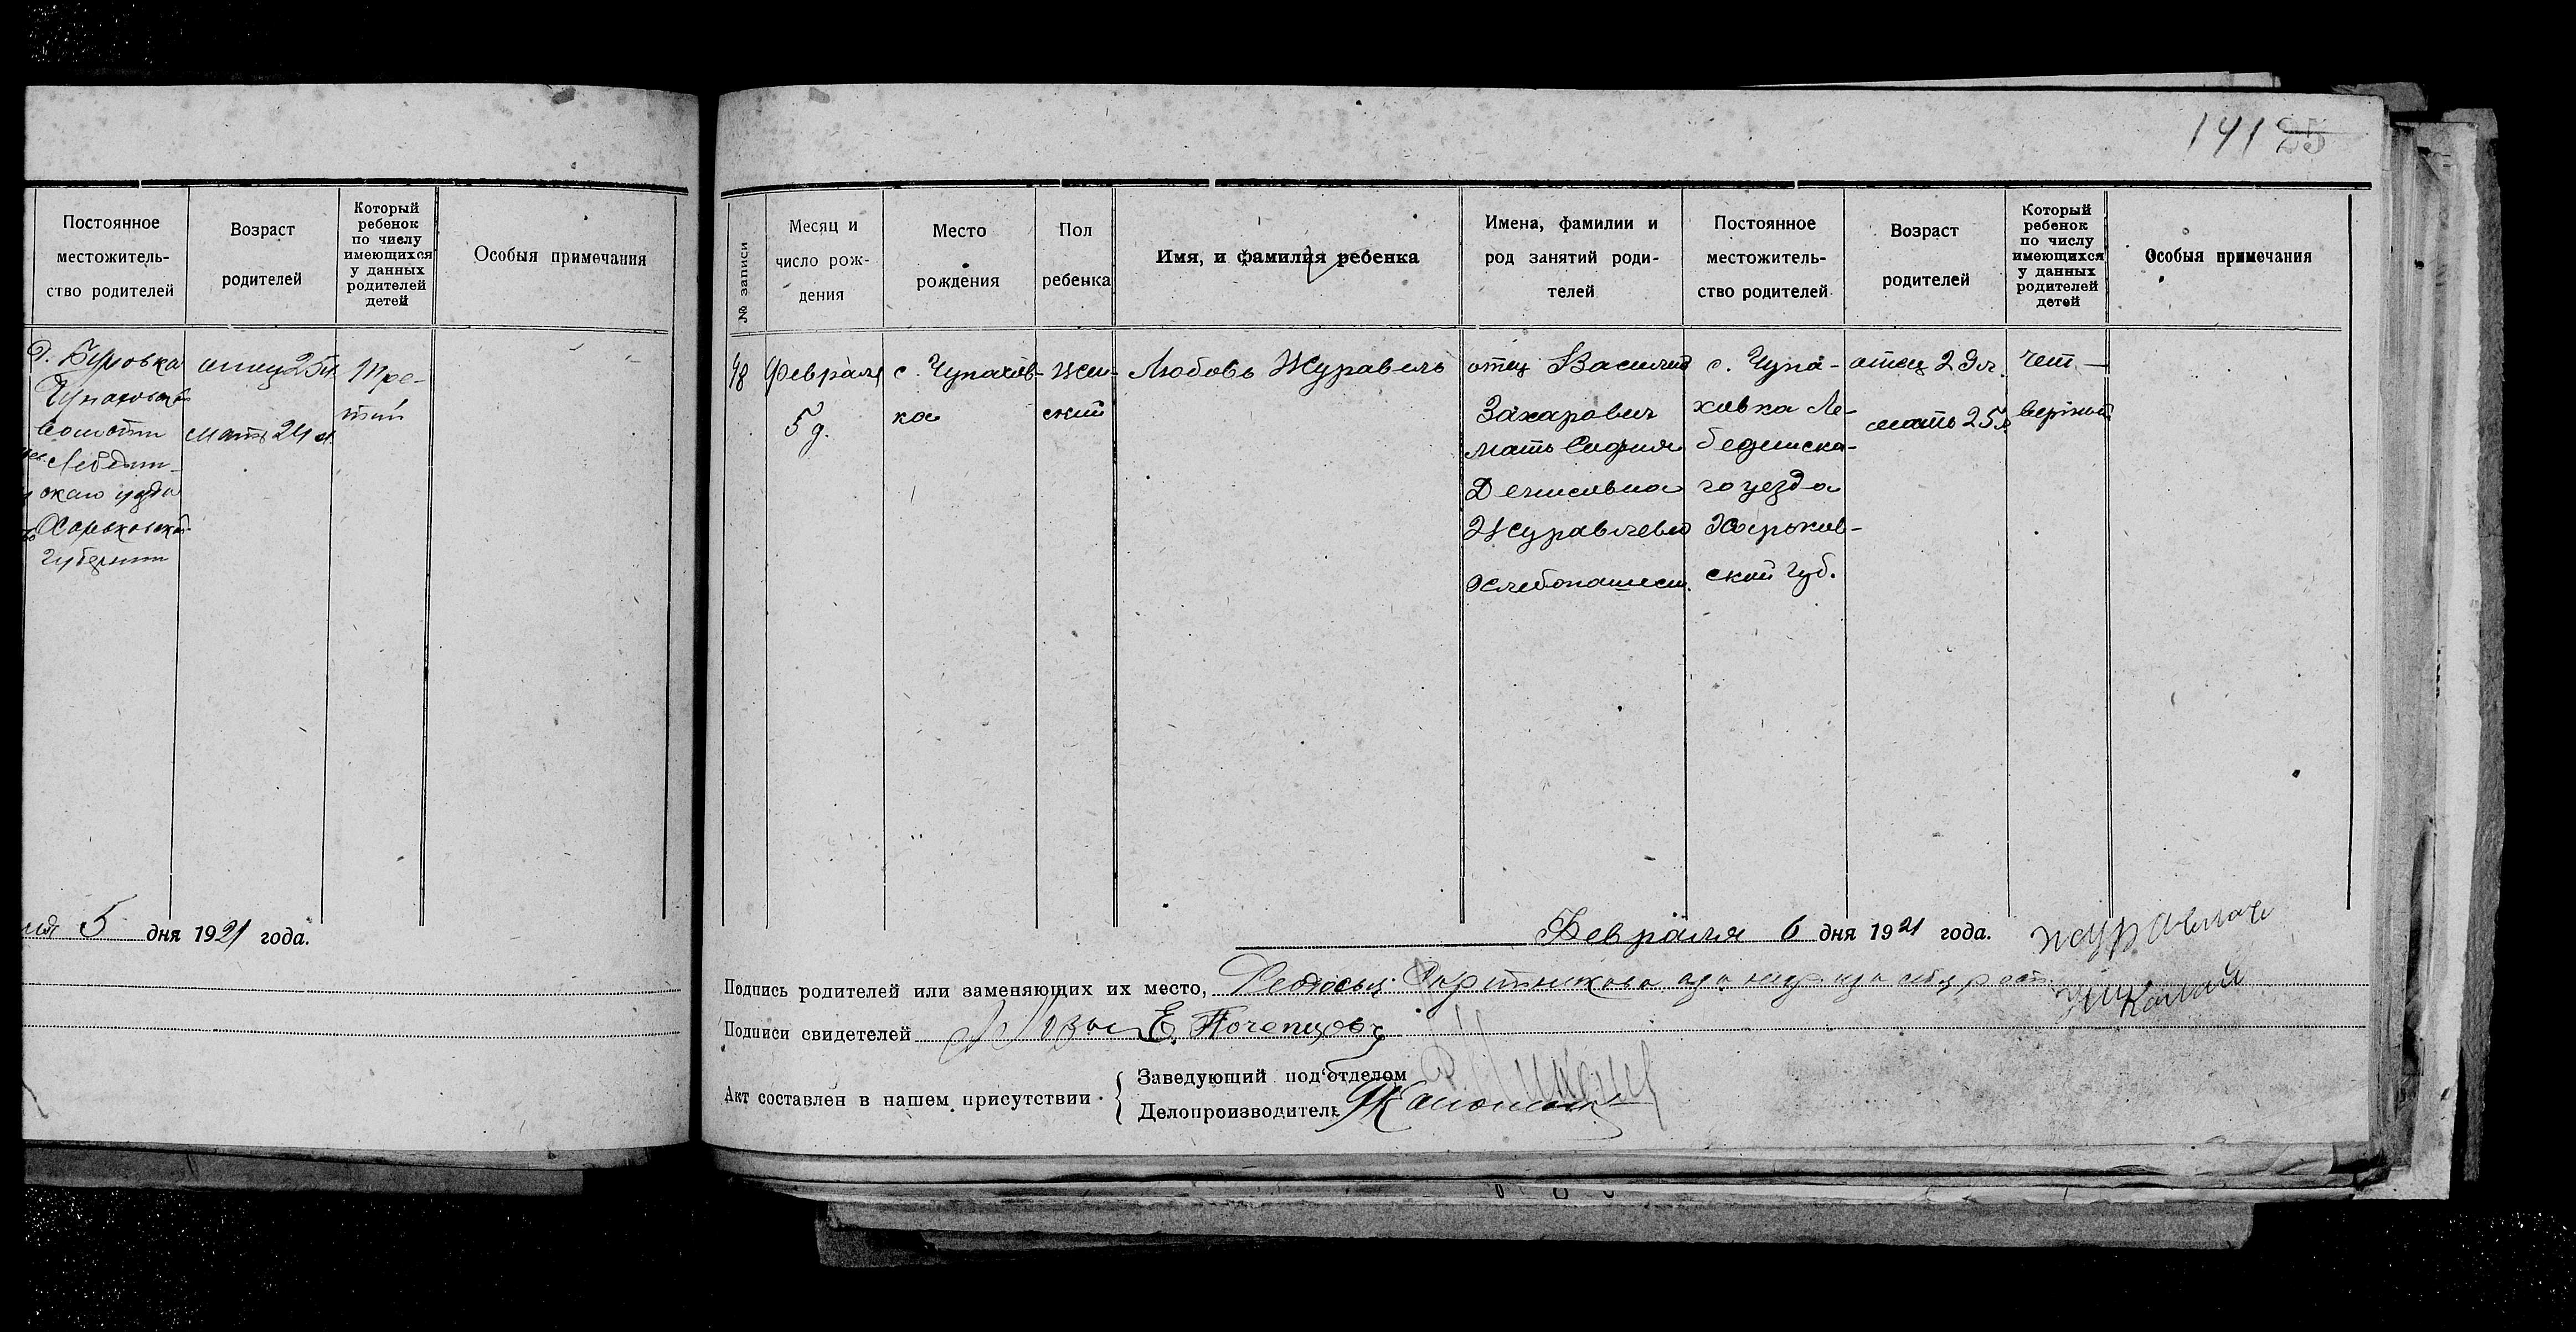 Постоянное
местожитель-
ство родителей
Возраст
родителей
Который
ребенок
по числу
имеющихся
у данных
родителей
детей
Особыя примечания
волости
Харьковской
губернии
отец 25 л.
мать 24 л.
Тре-
тий
5 дня 1921 года.
141 25
№ записи
Месяц и
число рож-
дения
Место
рождения
Пол
ребенка
Имя, и фамилия ребенка
Имена, фамилии и
род занятий роди-
телей
Постоянное
местожитель-
ство родителей
Возраст
родителей
Который
ребенок
по числу
имеющихся
у данных
родителей
детей
Особыя примечания
48
Февраля
5 д.
с. Чупахов-
ка
жен-
ский
Любовь Журавель
отец Василий
Захарович
мать София
Денисовна
Журавлево
Хлебопашест.
с. Чупа-
ховка Ле-
бединска-
го уезда
Харьков-
ской губ.
отец 29 л.
мать 25 л.
чет-
вертой
Февраля 6 дня 1921 года.
Подпись родителей или заменяющих их место,
Подписи свидетелей Е. Почепцовъ
Акт составлен в нашем присутствии
Заведующий под'отделом
Делопроизводитель